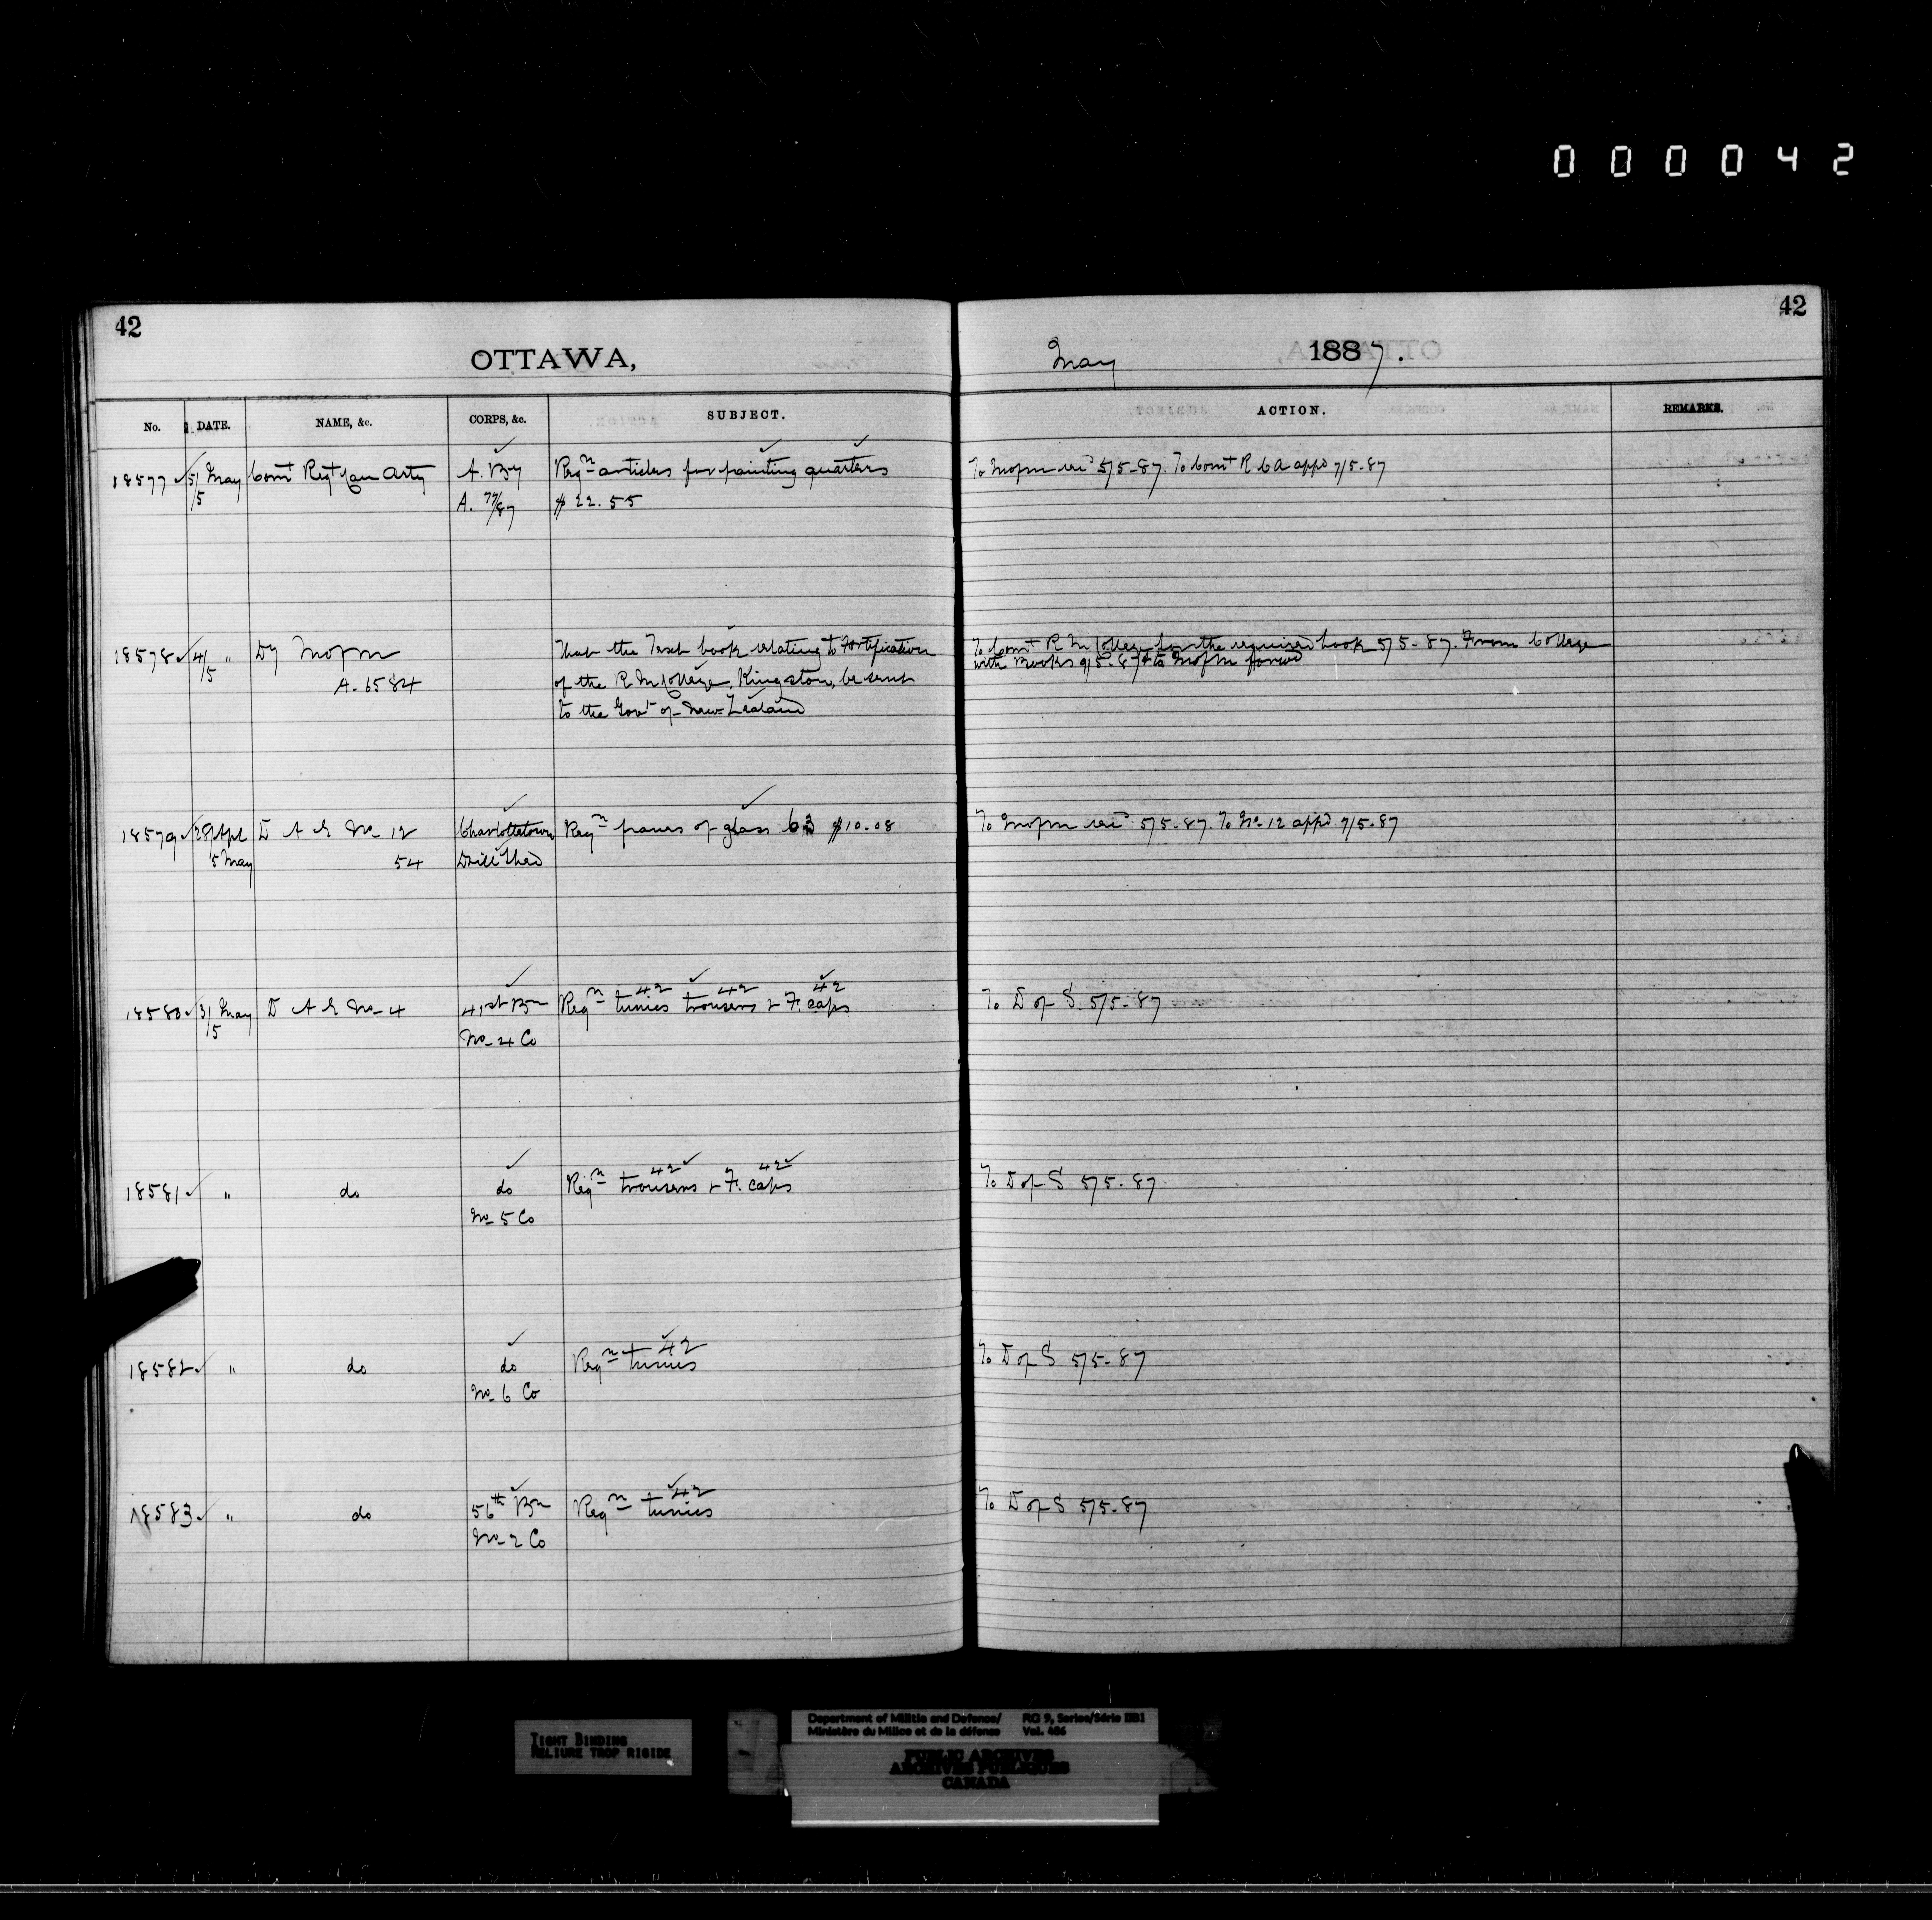 000042
42
42
OTTAWA, May 1887.
No. DATE. NAME, &c. CORPS, &c. SUBJECT. ACTION. REMARKS.
18577 5/5 May Comt Regt Can Arty A. By Reqn articles for painting quarters To Mofm 5/5-87. To Comt R C A appd 7/5-87
A. 77/87 $22.55
18578 4/5 " Dy Mofm That the Text book relating to Fortification To Comt R M College for the required book 5/5-87. From College
with Books 9/5-87 & to Mofm forwd
A. 6584 of the R M College, Kingston, be sent
to the Govt of New Zealand
18579 28/Apl D A G No 12 Charlottetown Reqn panes of glass 63 $10.08 To Mofm 5/5-87. To No 12 appd 7/5-87
5 May 54 Drill Shed
42 42 42
18580 3/5 May D A G No 4 41st Bn Reqn tunics trousers & F. caps To D of S. 5/5-87
No 4 Co
42 42
18581 " do do Reqn trousers & F. caps To D of S 5/5-87
No 5 Co
42
18582 " do do Reqn tunics To D of S 5/5-87
No 6 Co
42
18583 " do 56th Bn Reqn tunics To D of S 5/5-87
No 2 Co
TIGHT BINDING
RELIURE TROP RIGIDE
Department of Militia and Defence/ RG 9, Series/Série IIB1
Ministère du Milice et de la défense Vol. 486
PUBLIC ARCHIVES
ARCHIVES PUBLIQUES
CANADA